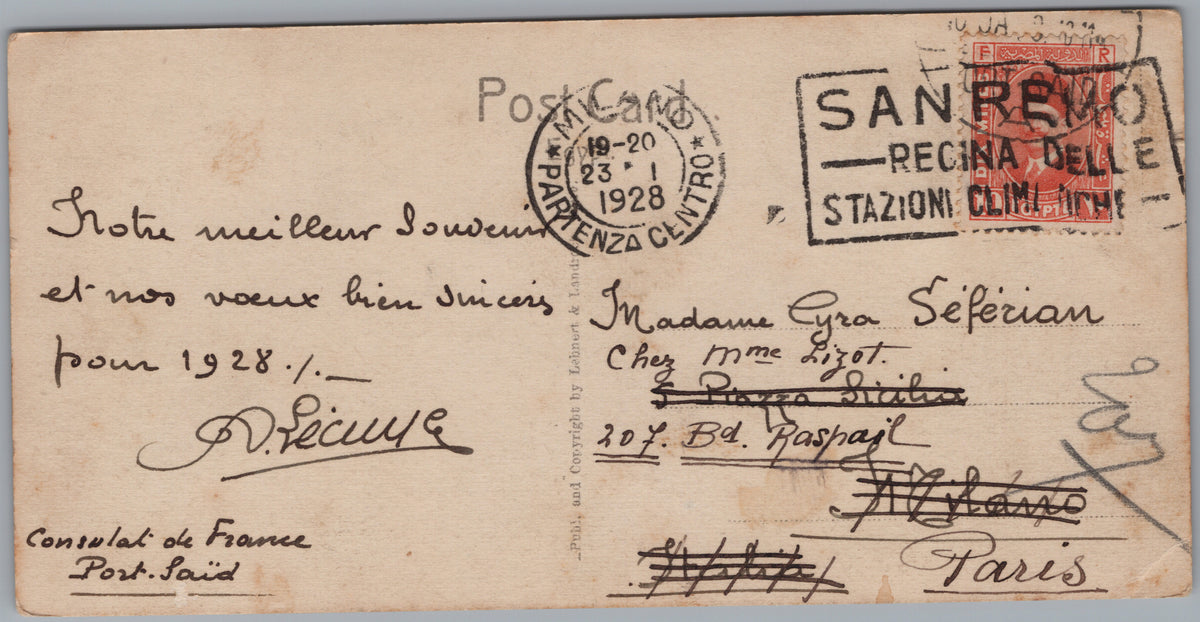 Post Card.
MILANO
19-20
23 · I
1928
* PARTENZA CENTRO *
SANREMO
— REGINA DELLE
STAZIONI CLIM
PORT SAID
Notre meilleur Souvenir
et nos vœux bien sincères
pour 1928 ./. —
Consulat de France
Port-Saïd
Publ. and Copyright by Lehnert & Landr
Madame Cyra Séférian
Chez Mme Lizot.
5 Piazza Sicilia
207. Bd. Raspail
Milano
Italia
Paris
207